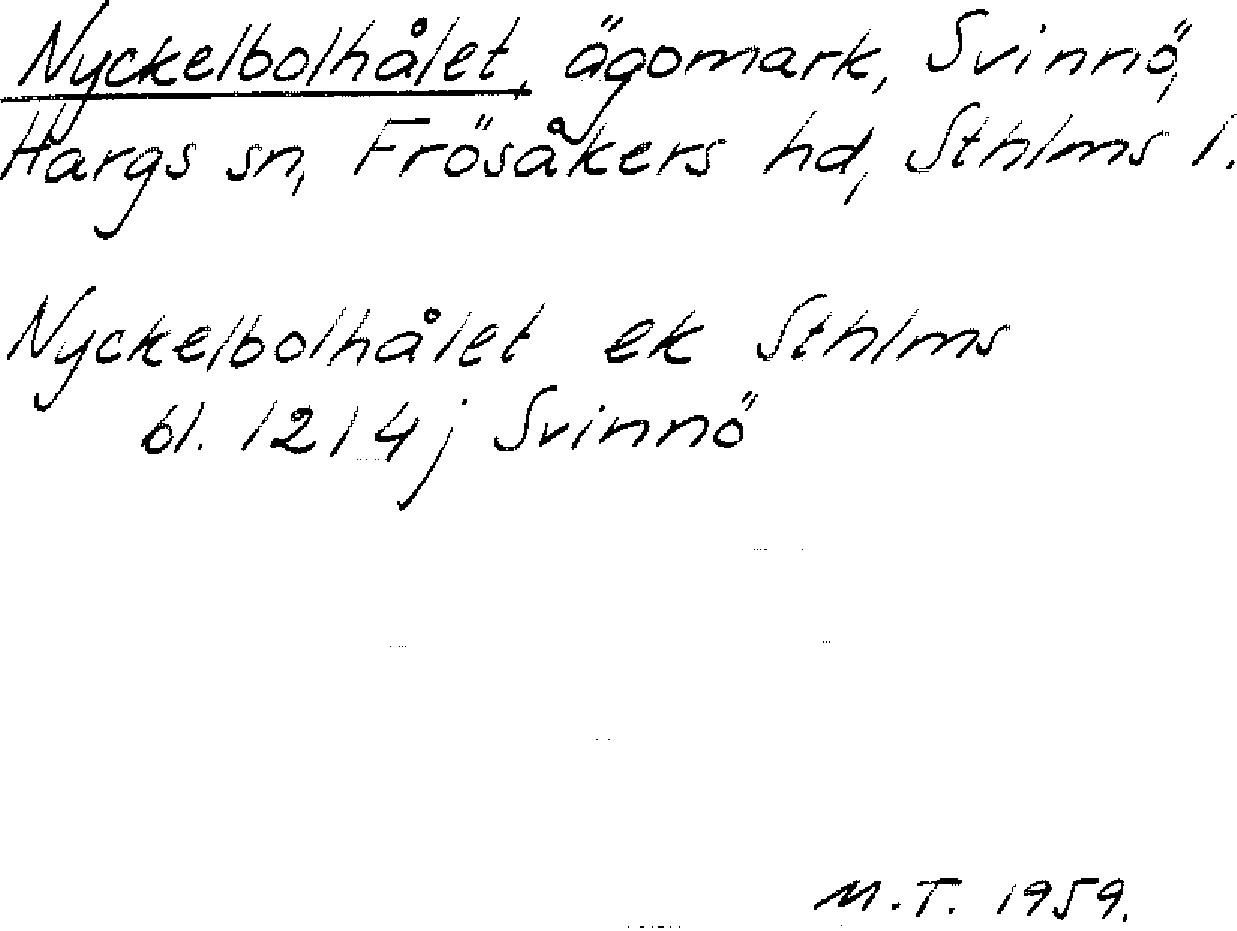 Nyckelbolhålet, ägomark, Svinnö,
Hargs sn, Frösåkers hd, Sthlms l.
Nyckelbolhålet ek Sthlms
bl. 1214j Svinnö
M.T. 1959.